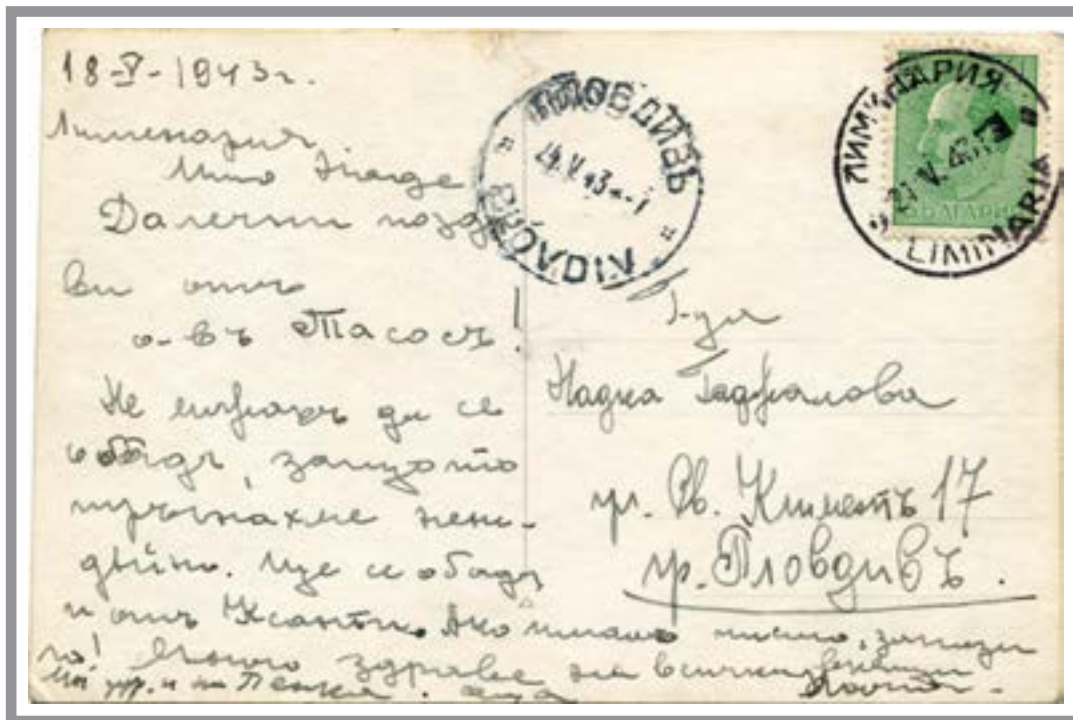 18-V-1943г.
Лименария
Мила Наде
Далечни
Ви отъ
о-въ Тасосъ!
Не можахъ да се
обадя, защото
тръгнахме неви-
дѣйно. Ще се обадя
и отъ Ксанти. Ако писмо, запази
го! Много здраве на всички
и на Пенка.
ПЛОВДИВЪ
24.V.43
PLOVDIV
ЛИМИНАРИЯ
21.V.43
LIMINARIA
БЪЛГАРИЯ
Г-ца
Надка
ул. Св. Климентъ 17
гр. Пловдивъ.